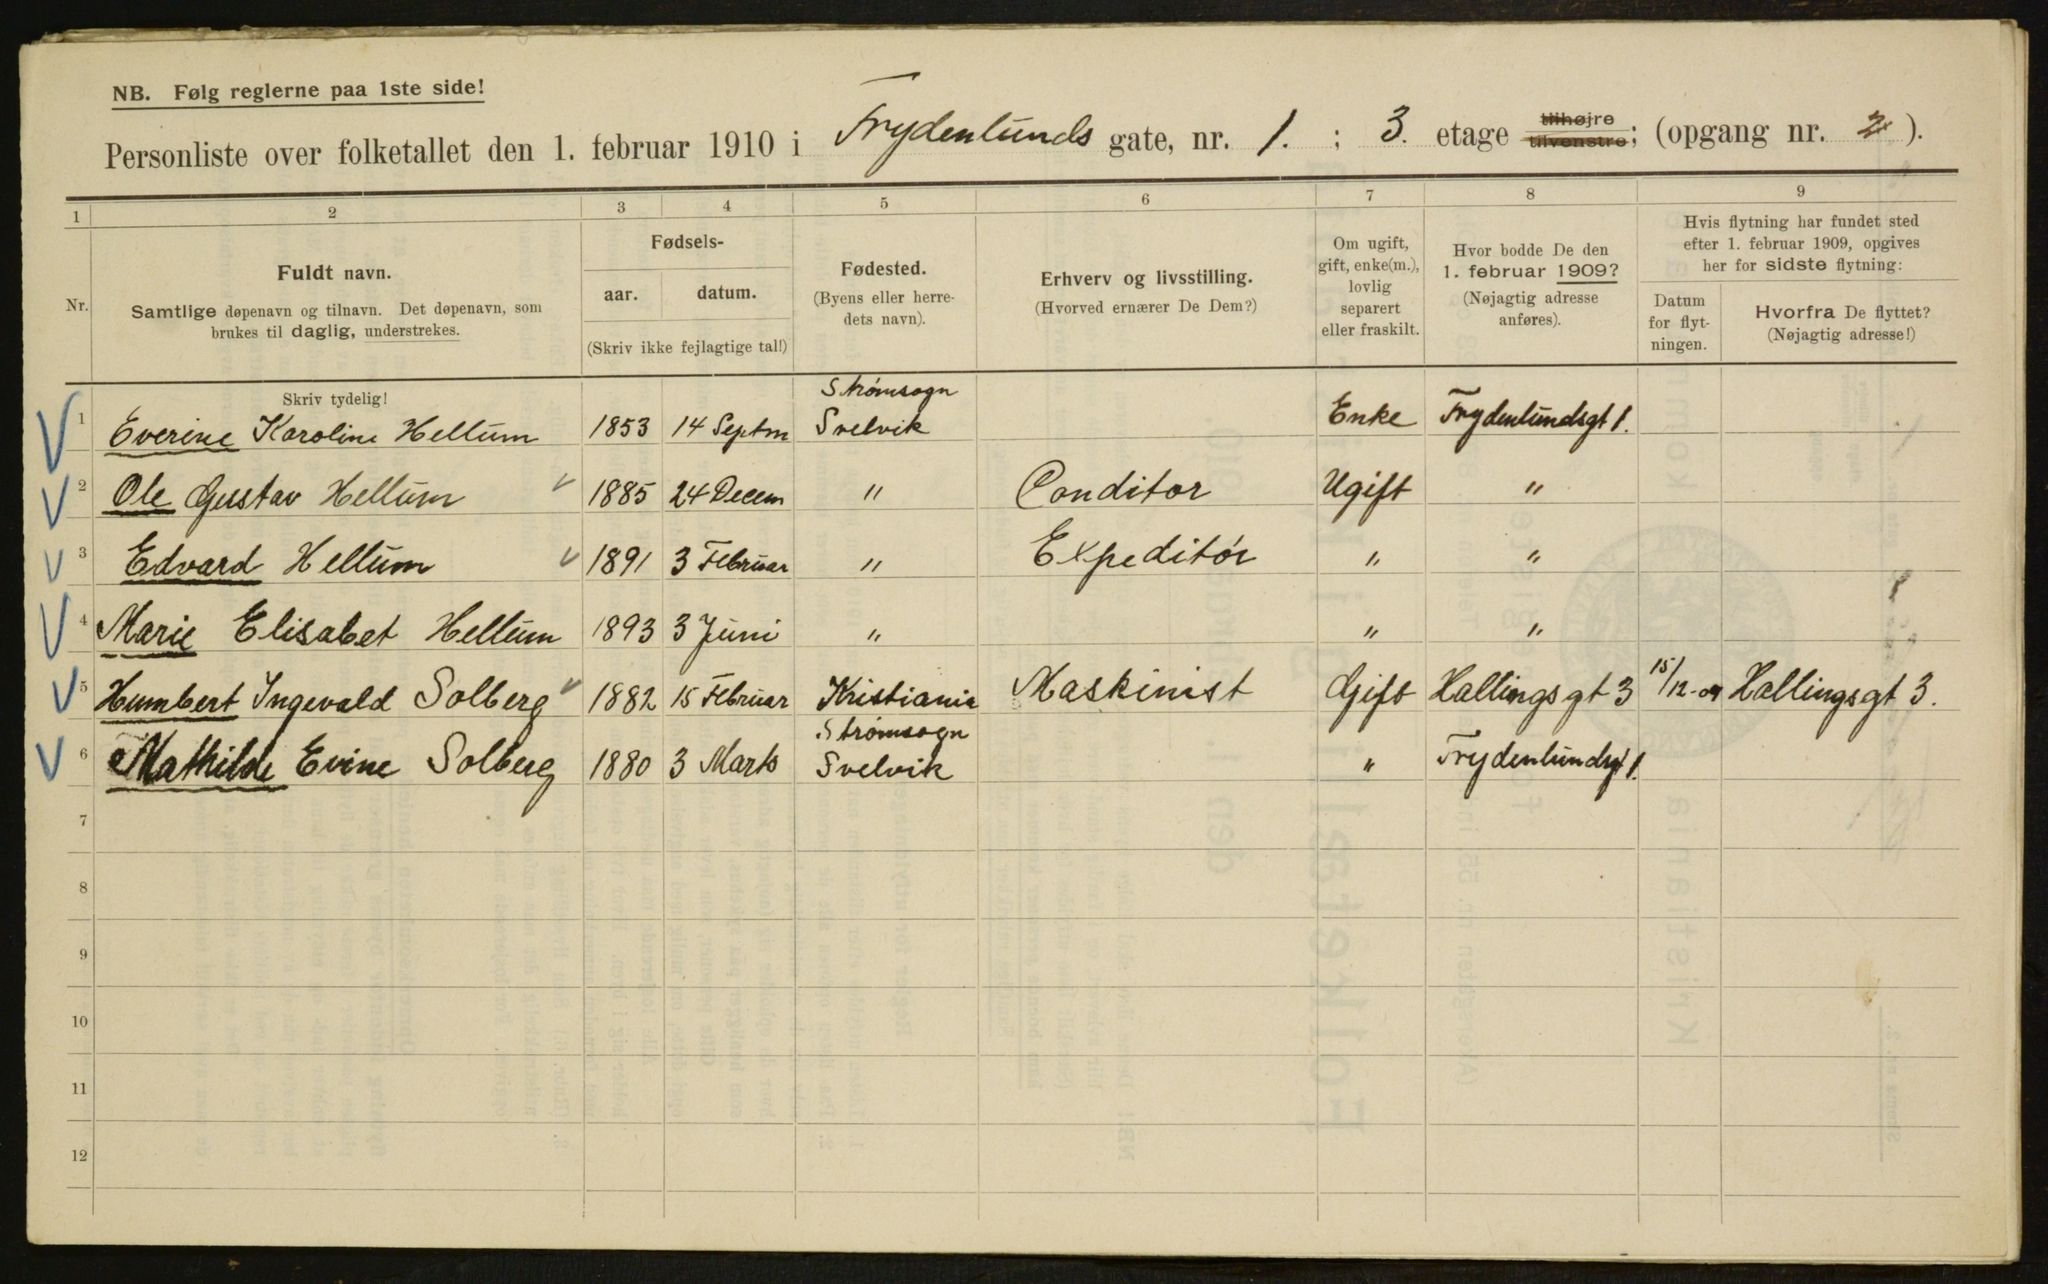 NB. Følg reglerne paa 1ste side!
Personliste over folketallet den 1. februar 1910 i Frydenlunds gate, nr. 1. ; 3. etage tilhøjre tilvenstre; (opgang nr. 2).
1 2 3 4 5 6 7 8 9
Nr.
Fuldt navn.
Samtlige døpenavn og tilnavn. Det døpenavn, som
brukes til daglig, understrekes.
Fødsels-
aar. datum.
(Skriv ikke fejlagtige tal!)
Fødested.
(Byens eller herre-
dets navn).
Erhverv og livsstilling.
(Hvorved ernærer De Dem?)
Om ugift,
gift, enke(m.),
lovlig
separert
eller fraskilt.
Hvor bodde De den
1. februar 1909?
(Nøjagtig adresse
anføres).
Hvis flytning har fundet sted
efter 1. februar 1909, opgives
her for sidste flytning:
Datum
for flyt-
ningen.
Hvorfra De flyttet?
(Nøjagtig adresse!)
Skriv tydelig!
1 Everine Karoline Hellum 1853 14 Septm Strømsogn Svelvik Enke Frydenlundsgt 1.
2 Ole Gustav Hellum 1885 24 Decem " Conditor Ugift "
3 Edvard Hellum 1891 3 Februar " Expeditør " "
4 Marie Elisabet Hellum 1893 3 Juni " " "
5 Humbert Ingevald Solberg 1882 15 Februar Kristiania Maskinist Gift Hallingsgt 3 15/12-09 Hallingsgt 3.
6 Mathilde Evine Solberg 1880 3 Marts Strømsogn Svelvik " Frydenlundsgt 1.
7
8
9
10
11
12